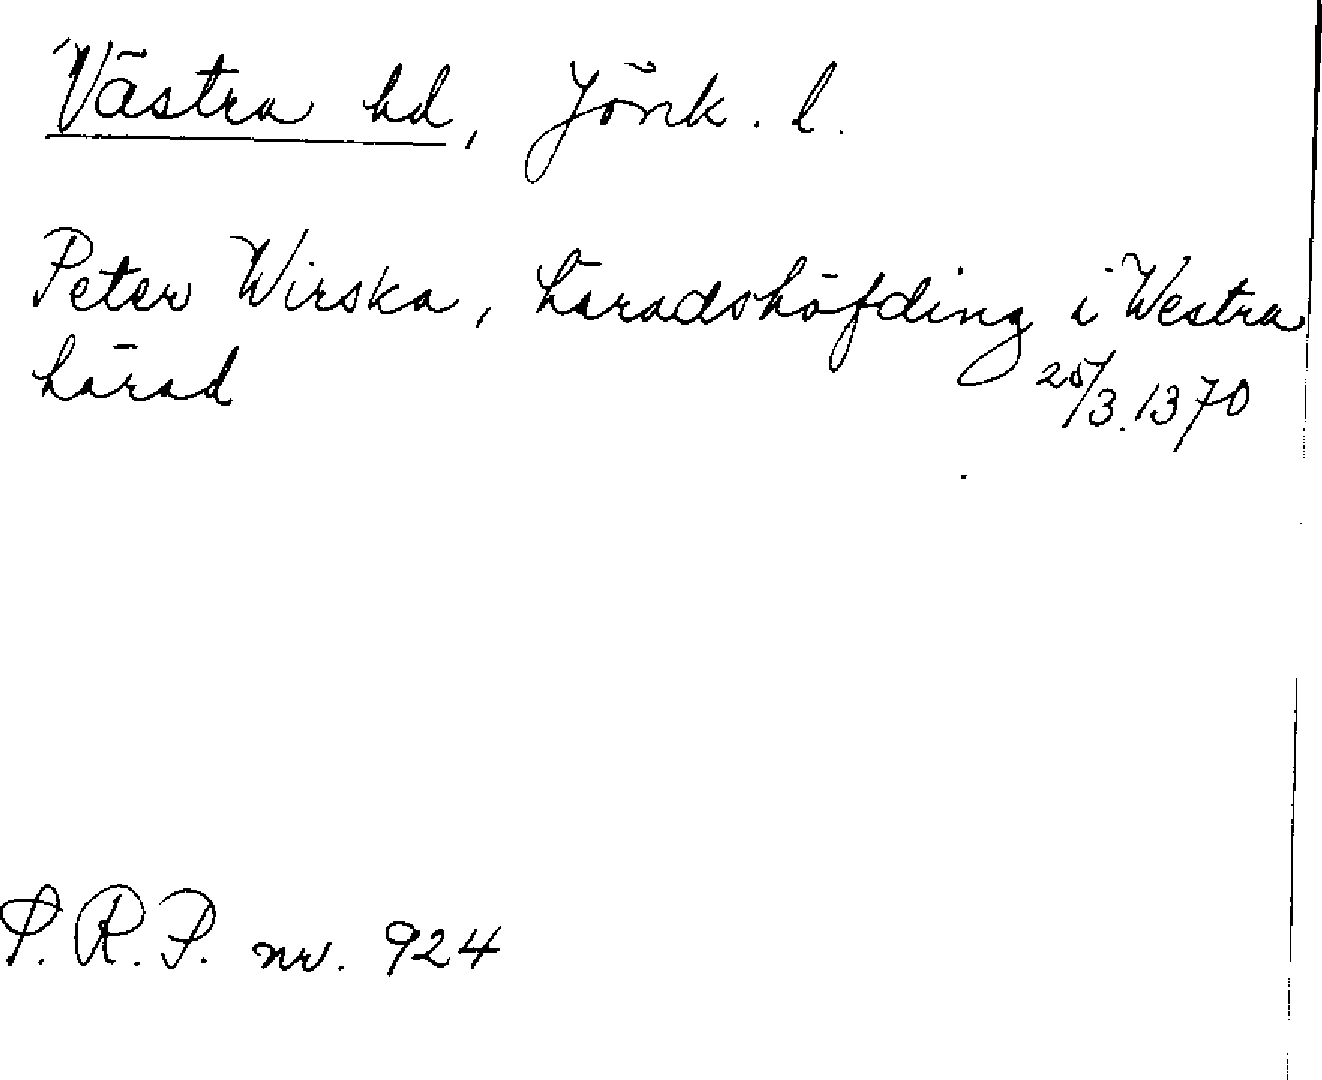 Västra hd, Jönk. l.
Peter Wirska, häradshöfding i Westra
härad 25/3.1370
P.R.P. nr. 924